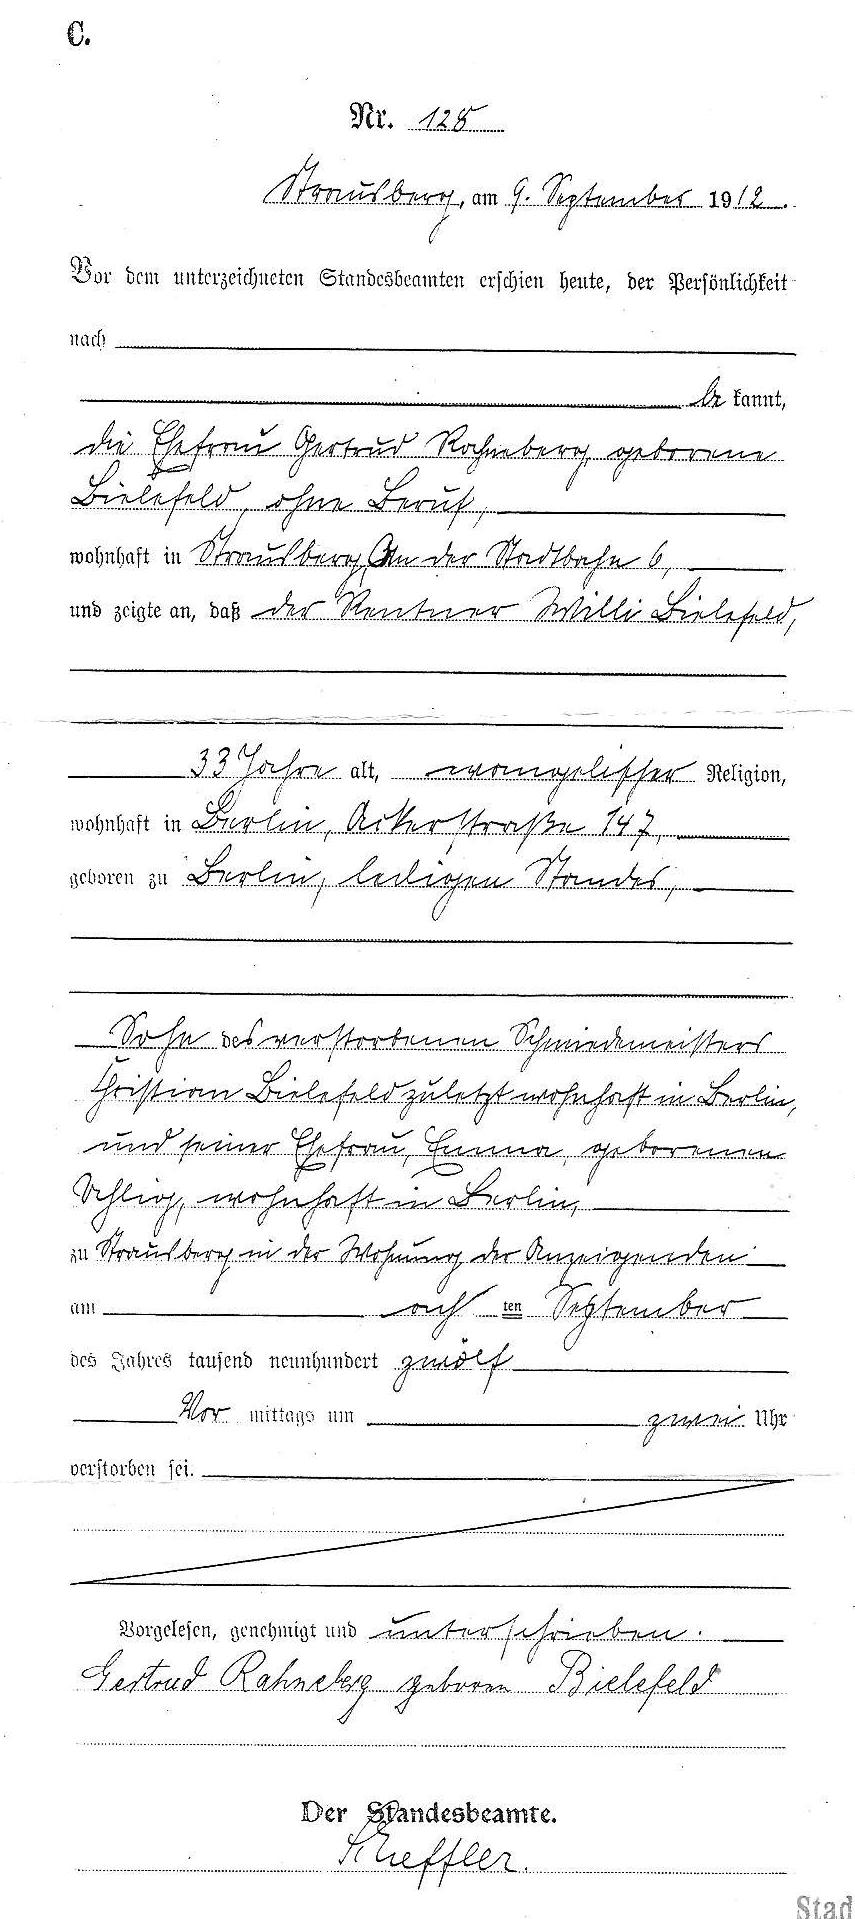 C.
Nr. 128
Strausberg, am 9. September 1912.
Vor dem unterzeichneten Standesbeamten erschien heute, der Persönlichkeit
nach
be kannt,
die Ehefrau Gertrud Rahneberg, geborene
Bielefeld, ohne Beruf,
wohnhaft in Strausberg, An der Stadtbahn 6,
und zeigte an, daß der Rentner Willi Bielefeld,
33 Jahre alt, evangelischer Religion,
wohnhaft in Berlin, Ackerstraße 147,
geboren zu Berlin, ledigen Standes,
Sohn des verstorbenen Schmiedemeisters
Christian Bielefeld zuletzt wohnhaft in Berlin,
und seiner Ehefrau, Emma, geborenen
wohnhaft in Berlin,
zu Strausberg in der Wohnung der Anzeigenden
am ach ten September
des Jahres tausend neunhundert zwölf
Vor mittags um zwei Uhr
verstorben sei.
Vorgelesen, genehmigt und unterschrieben.
Gertrud Rahneberg geboren Bielefeld
Der Standesbeamte.
Scheffler.
Stad